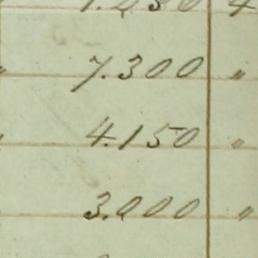 7.300 "
4.150 "
3.000 "